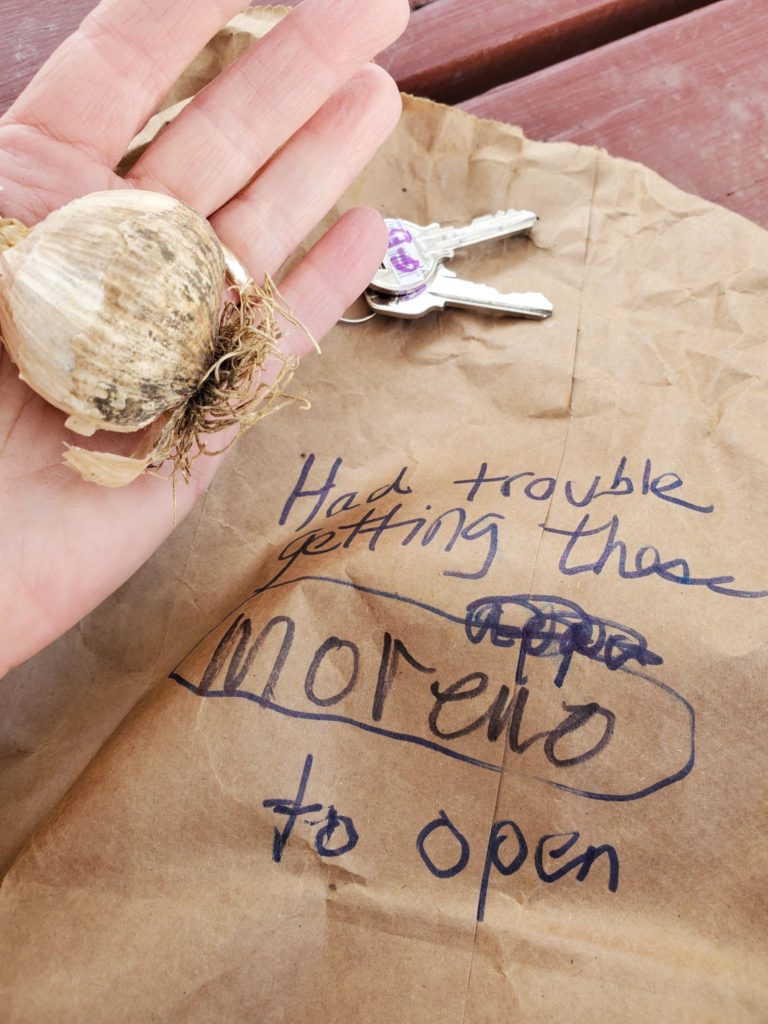 Had trouble
getting these
Moreno
to open